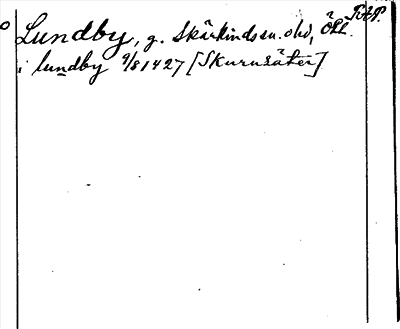 RAP.
Lundby, g. Skärkinds sn. o. hd, ÖLL.
i lundby 9/8 1427 [Skurusäter]